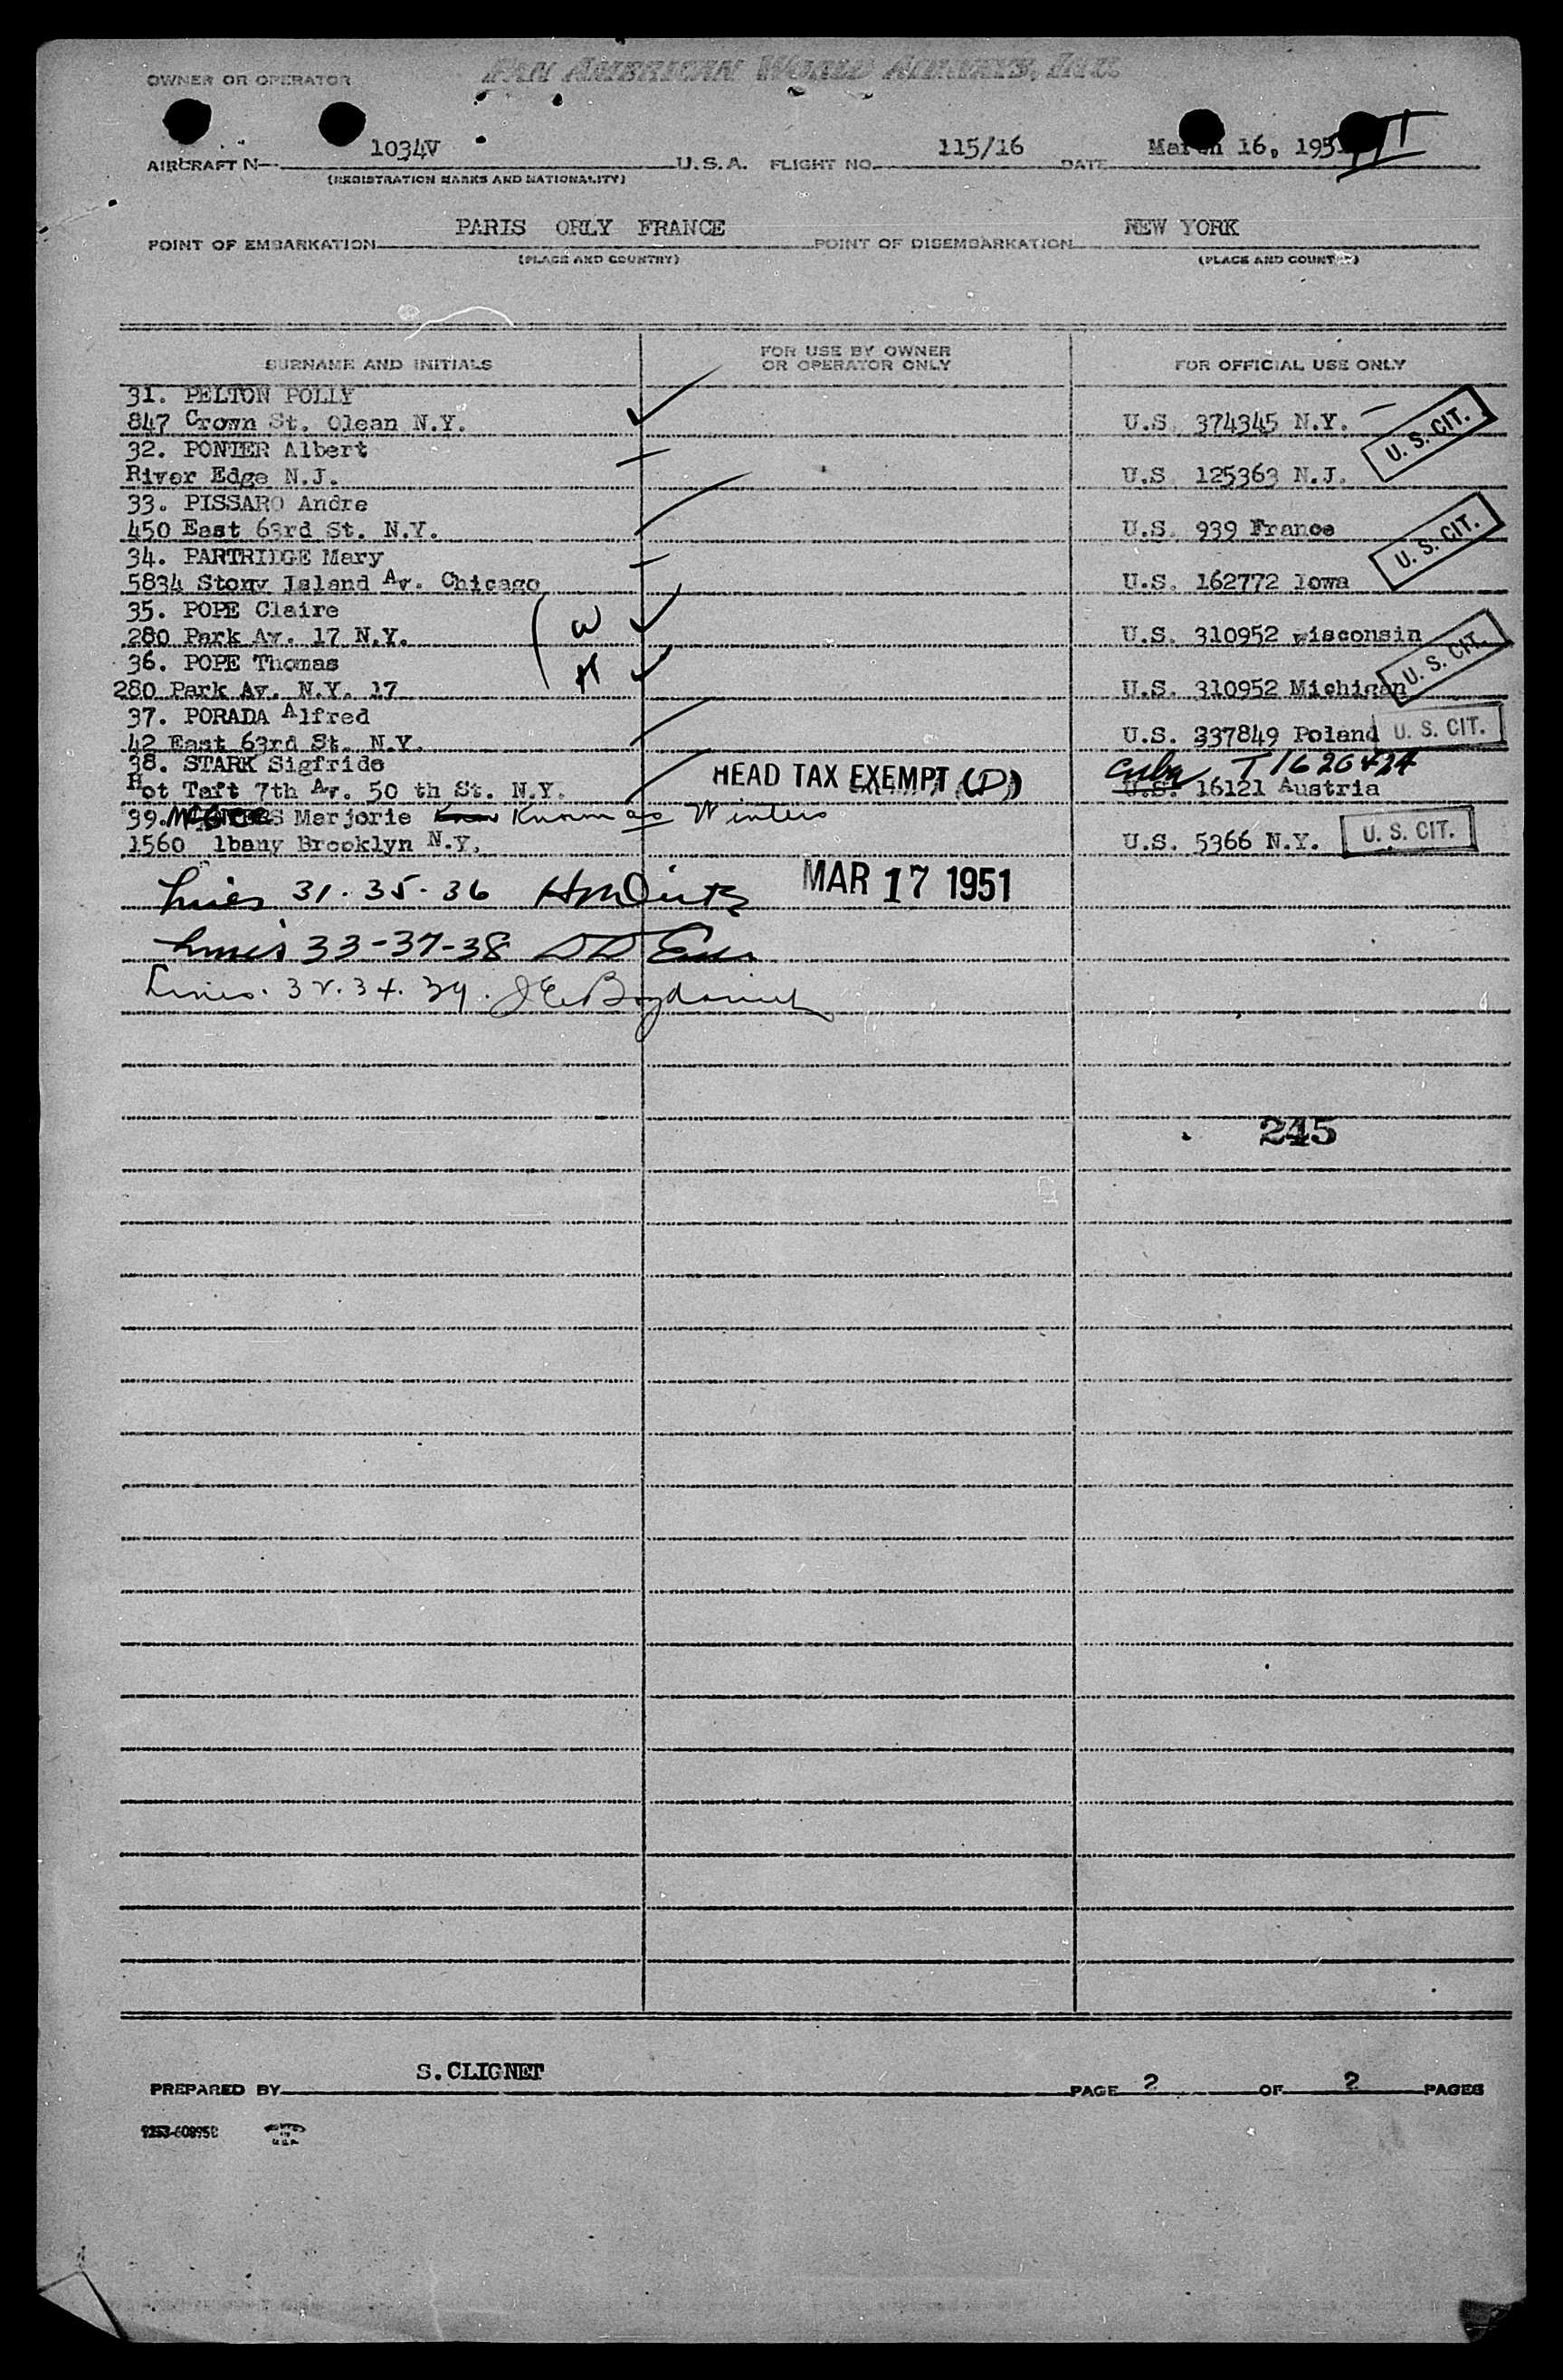 OWNER OR OPERATOR PAN AMERICAN WORLD AIRWAYS, INC.
AIRCRAFT N 1034V U.S.A. FLIGHT NO. 115/16 DATE March 16, 1951 III
(REGISTRATION MARKS AND NATIONALITY)
POINT OF EMBARKATION PARIS ORLY FRANCE POINT OF DISEMBARKATION NEW YORK
(PLACE AND COUNTRY) (PLACE AND COUNTRY)
SURNAME AND INITIALS FOR USE BY OWNER OR OPERATOR ONLY FOR OFFICIAL USE ONLY
31. PELTON POLLY
847 Crown St. Olean N.Y. U.S. 374345 N.Y. U. S. CIT.
32. PONTER Albert
River Edge N.J. U.S. 125363 N.J.
33. PISSARO Andre
450 East 63rd St. N.Y. U.S. 939 France U. S. CIT.
34. PARTRIDGE Mary
5834 Stony Island Av. Chicago U.S. 162772 Iowa
35. POPE Claire
280 Park Av. 17 N.Y. W U.S. 310952 wisconsin
36. POPE Thomas U. S. CIT.
280 Park Av. N.Y. 17 H U.S. 310952 Michigan
37. PORADA Alfred
42 East 63rd St. N.Y. U.S. 337849 Poland U. S. CIT.
38. STARK Sigfride HEAD TAX EXEMPT (D) Cuba T1626424
Hot Taft 7th Av. 50 th St. N.Y. U.S. 16121 Austria
39. Marjorie Known as Winters
1560 lbany Brooklyn N.Y. U.S. 5366 N.Y. U. S. CIT.
Lines 31. 35. 36 MAR 17 1951
Lines 33-37-38
Lines. 32. 34. 39.
245
PREPARED BY S. CLIGNET PAGE 2 OF 2 PAGES
PRINTED IN U.S.A.